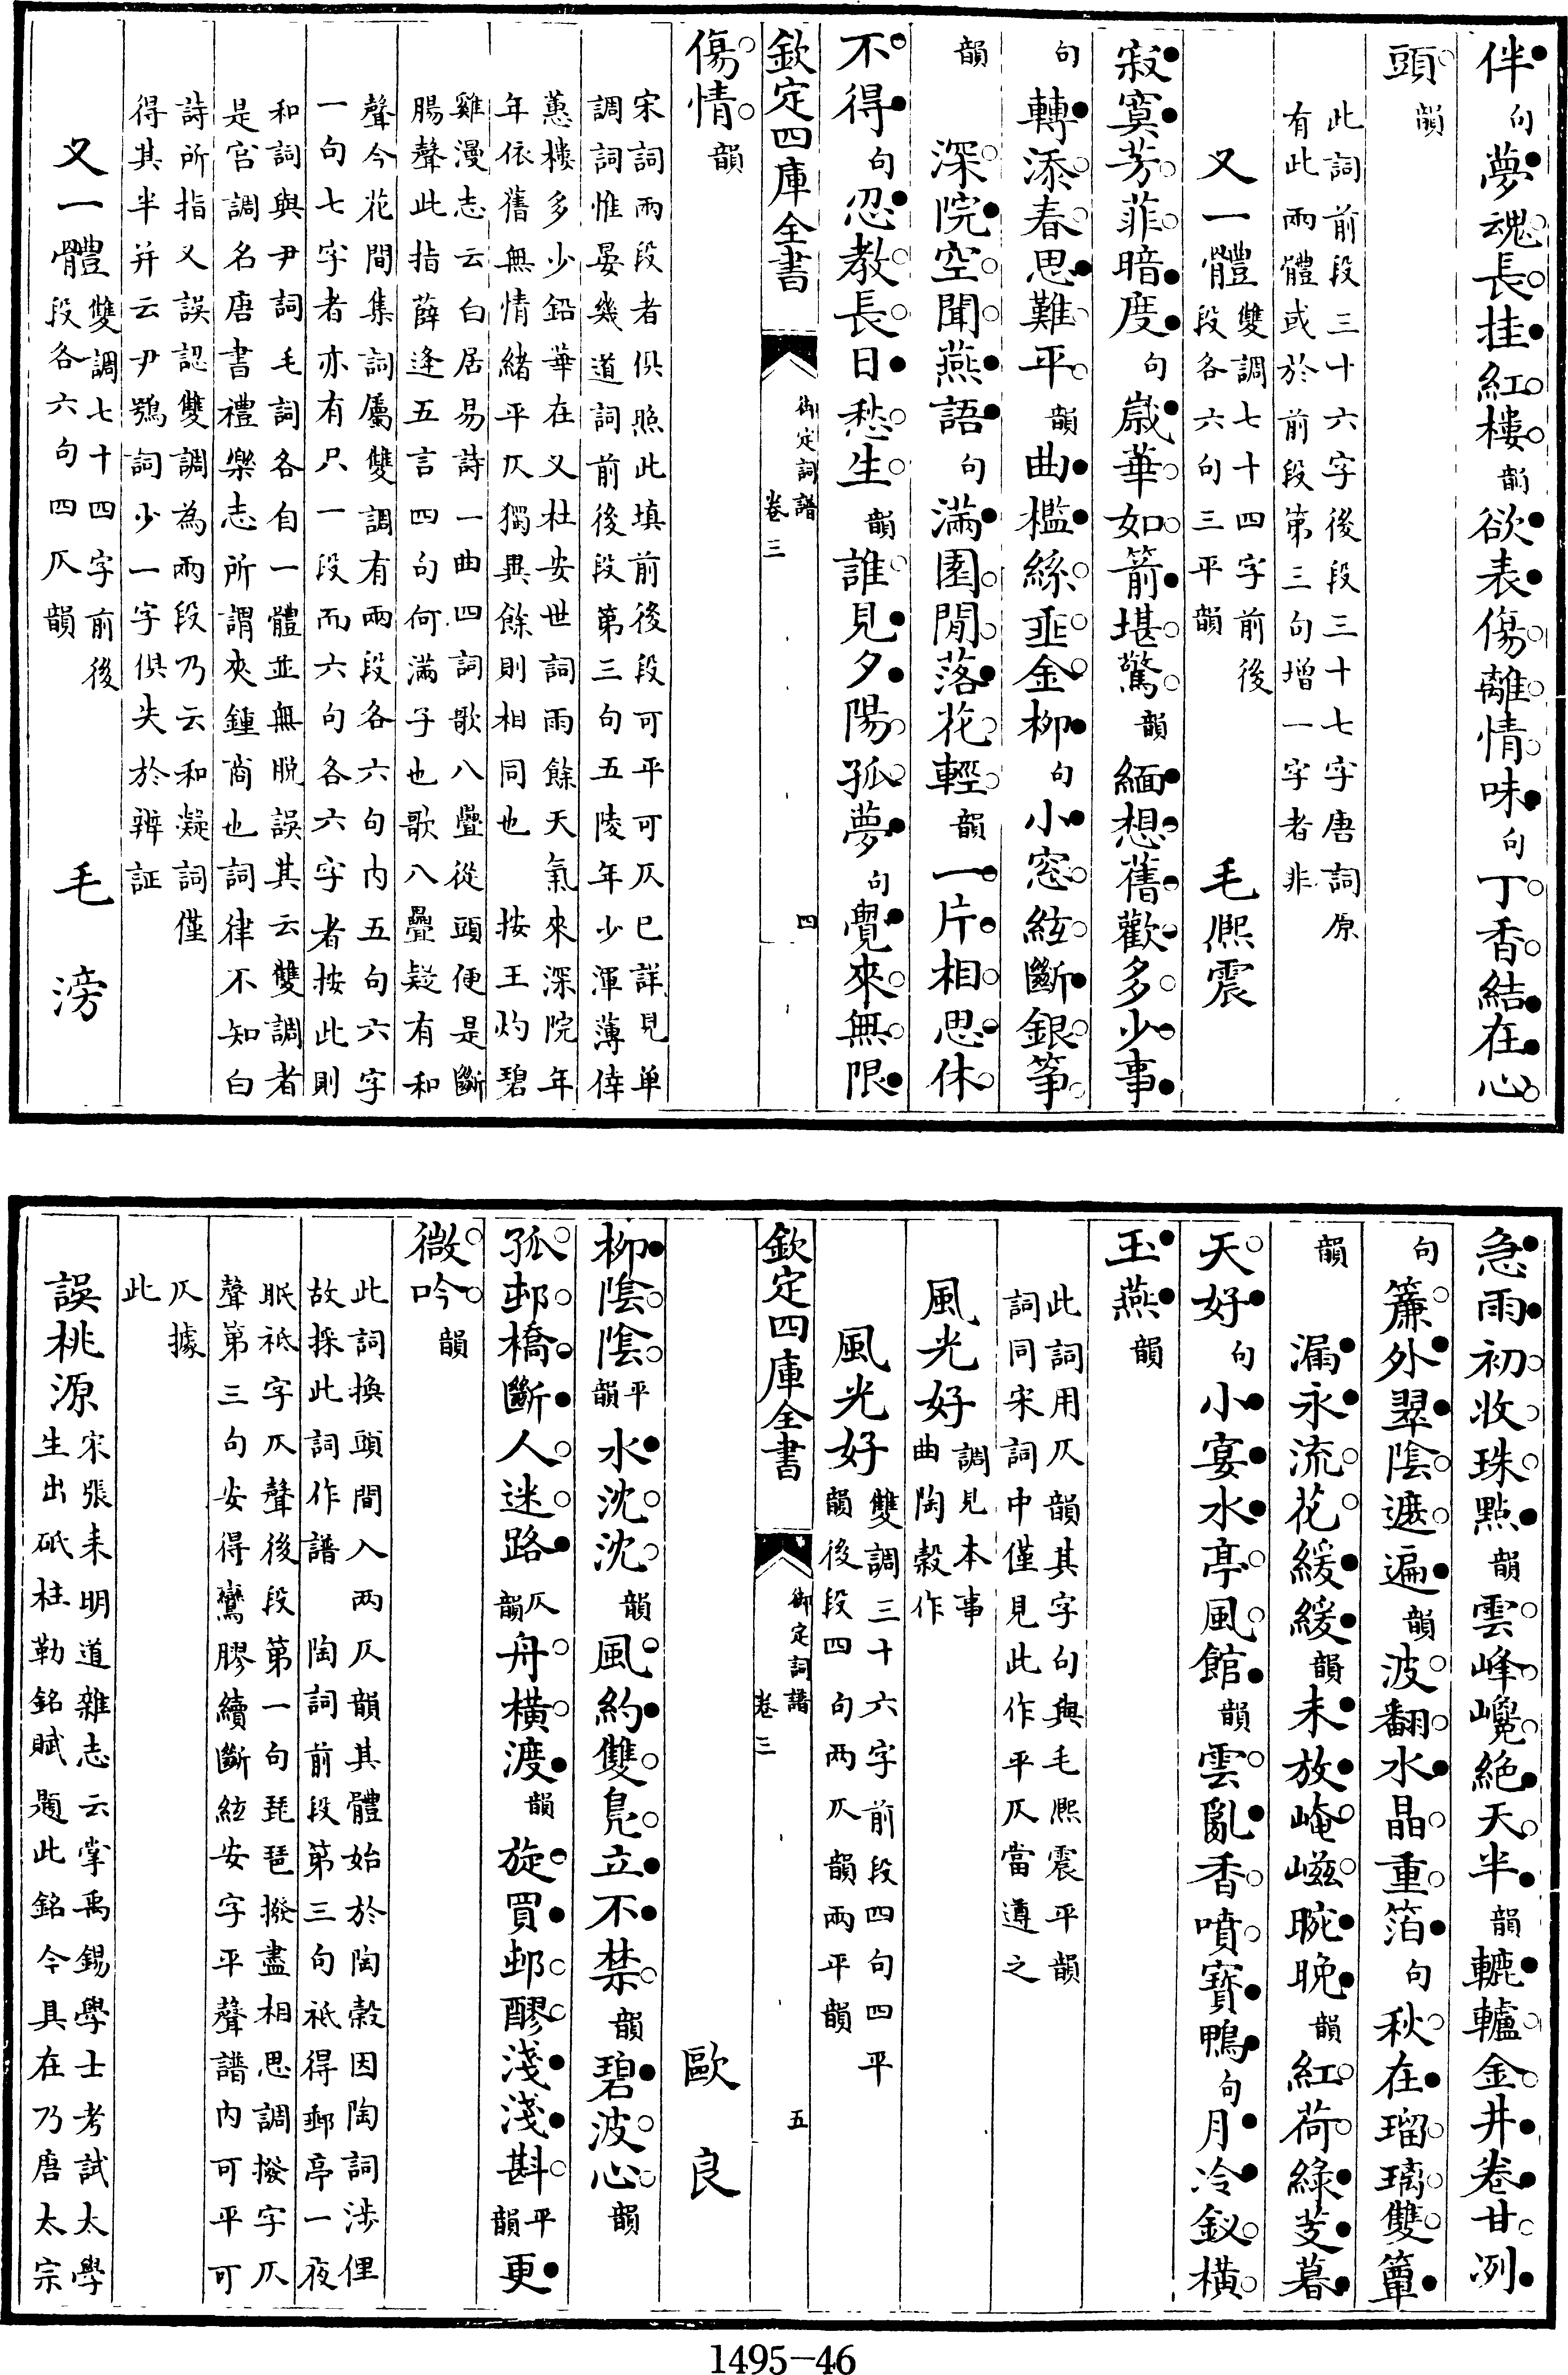 伴句夢魂長挂紅樓韻欲表傷離情味句丁香結在心
頭韻
此詞前段三十六字後段三十七字唐詞原
有此兩體或於前段第三句增一字者非
又一體雙調七十四字前後段各六句三平韻 毛熙震
寂寞芳菲暗度句歲華如箭堪驚韻緬想舊歡多少事
句轉添春思難平韻曲檻絲垂金柳句小窓絃斷銀箏
韻深院空聞燕語句滿園閒落花輕韻一片相思休
不得句忍教長日愁生韻誰見夕陽孤夢句覺來無限
欽定四庫全書 御定詞譜卷三 四
傷情韻
宋詞兩段者俱照此填前後段可平可仄已詳見单
調詞惟晏幾道詞前後段第三句五陵年少渾薄倖
蕙樓多少鉛華在又杜安世詞雨餘天氣來深院年
年依舊無情緒平仄獨異餘則相同也 按王灼碧
雞漫志云白居易詩一曲四詞歌八疊從頭便是斷
腸聲此指薛逢五言四句何滿子也歌八疊疑有和
聲今花間集詞屬雙調有兩段各六句内五句六字
一句七字者亦有只一段而六句各六字者按此則
和詞與尹詞毛詞各自一體並無脱誤其云雙調者
是宮調名唐書禮樂志所謂夾鍾商也詞律不知白
詩所指又誤認雙調為兩段乃云和凝詞僅
得其半并云尹鶚詞少一字俱失於辨証
又一體雙調七十四字前後段各六句四仄韻 毛滂
急雨初收珠點韻雲峰巉絶天半韻轆轤金井卷甘冽
句簾外翠陰遮遍韻波翻水晶重箔句秋在瑠璃雙簟
韻漏永流花緩緩韻未放崦嵫晼晚韻紅荷綠芰暮
天好句小宴水亭風館韻雲亂香噴寳鴨句月冷釵横
玉燕韻
此詞用仄韻其字句與毛熙震平韻
詞同宋詞中僅見此作平仄當遵之
風光好調見本事曲陶榖作
風光好雙調三十六字前段四句四平韻後段四句两仄韻兩平韻
欽定四庫全書 御定詞譜卷三 五
歐良
柳陰陰平韻水沈沈韻風約雙鳬立不禁韻碧波心韻
孤邨橋斷人迷路仄韻舟横渡韻旋買邨醪淺淺斟平韻更
微吟韻
此詞換頭間入两仄韻其體始於陶榖因陶詞涉俚
故採此詞作譜 陶詞前段第三句祇得郵亭一夜
眠祇字仄聲後段第一句琵琶撥盡相思調撥字仄
聲第三句安得鸞膠續斷絃安字平聲譜内可平可
仄據
此
誤桃源宋張耒明道雜志云掌禹錫學士考試太學生出砥柱勒銘賦題此銘今具在乃唐太宗
1495-46